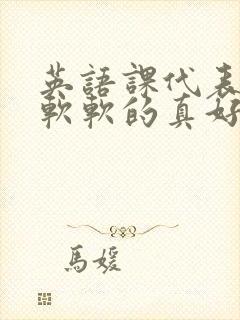 英語課代表
軟軟的真好
馬媛